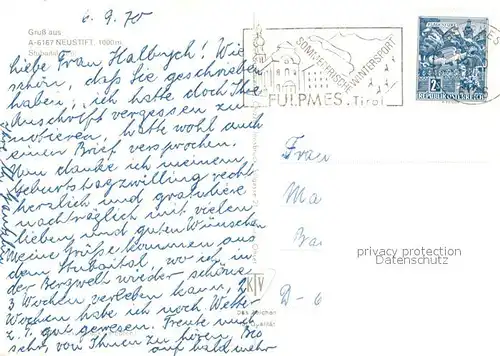 6. 9. 70
Gruß aus
A-6167 NEUSTIFT, 1000 m
Stubaital
liebe Frau Halbusch! Wie
schön, daß Sie geschrieben
haben, ich hatte doch Ihre
Anschrift vergessen zu
notieren, hätte wohl auch
einen Brief versprochen.
Nun danke ich meinem
Geburtstagszwilling recht
herzlich und gratuliere
nachträglich mit vielen
lieben und guten Wünschen
Meine Grüße kommen aus
dem Stubaital, wo ich in
der Bergwelt wieder schöne
3 Wochen verleben kann, 2
Wochen habe ich noch. Wetter
z. T. gut gewesen. Freute mich
sehr, von Ihnen zu hören. Bis
auf bald mehr
SOMMERFRISCHE WINTERSPORT
FULPMES. Tirol
2S
REPUBLIK ÖSTERREICH
Frau
Ma
Ba
D - 6
KV
Das Zeichen
privacy protection
oldthing.de